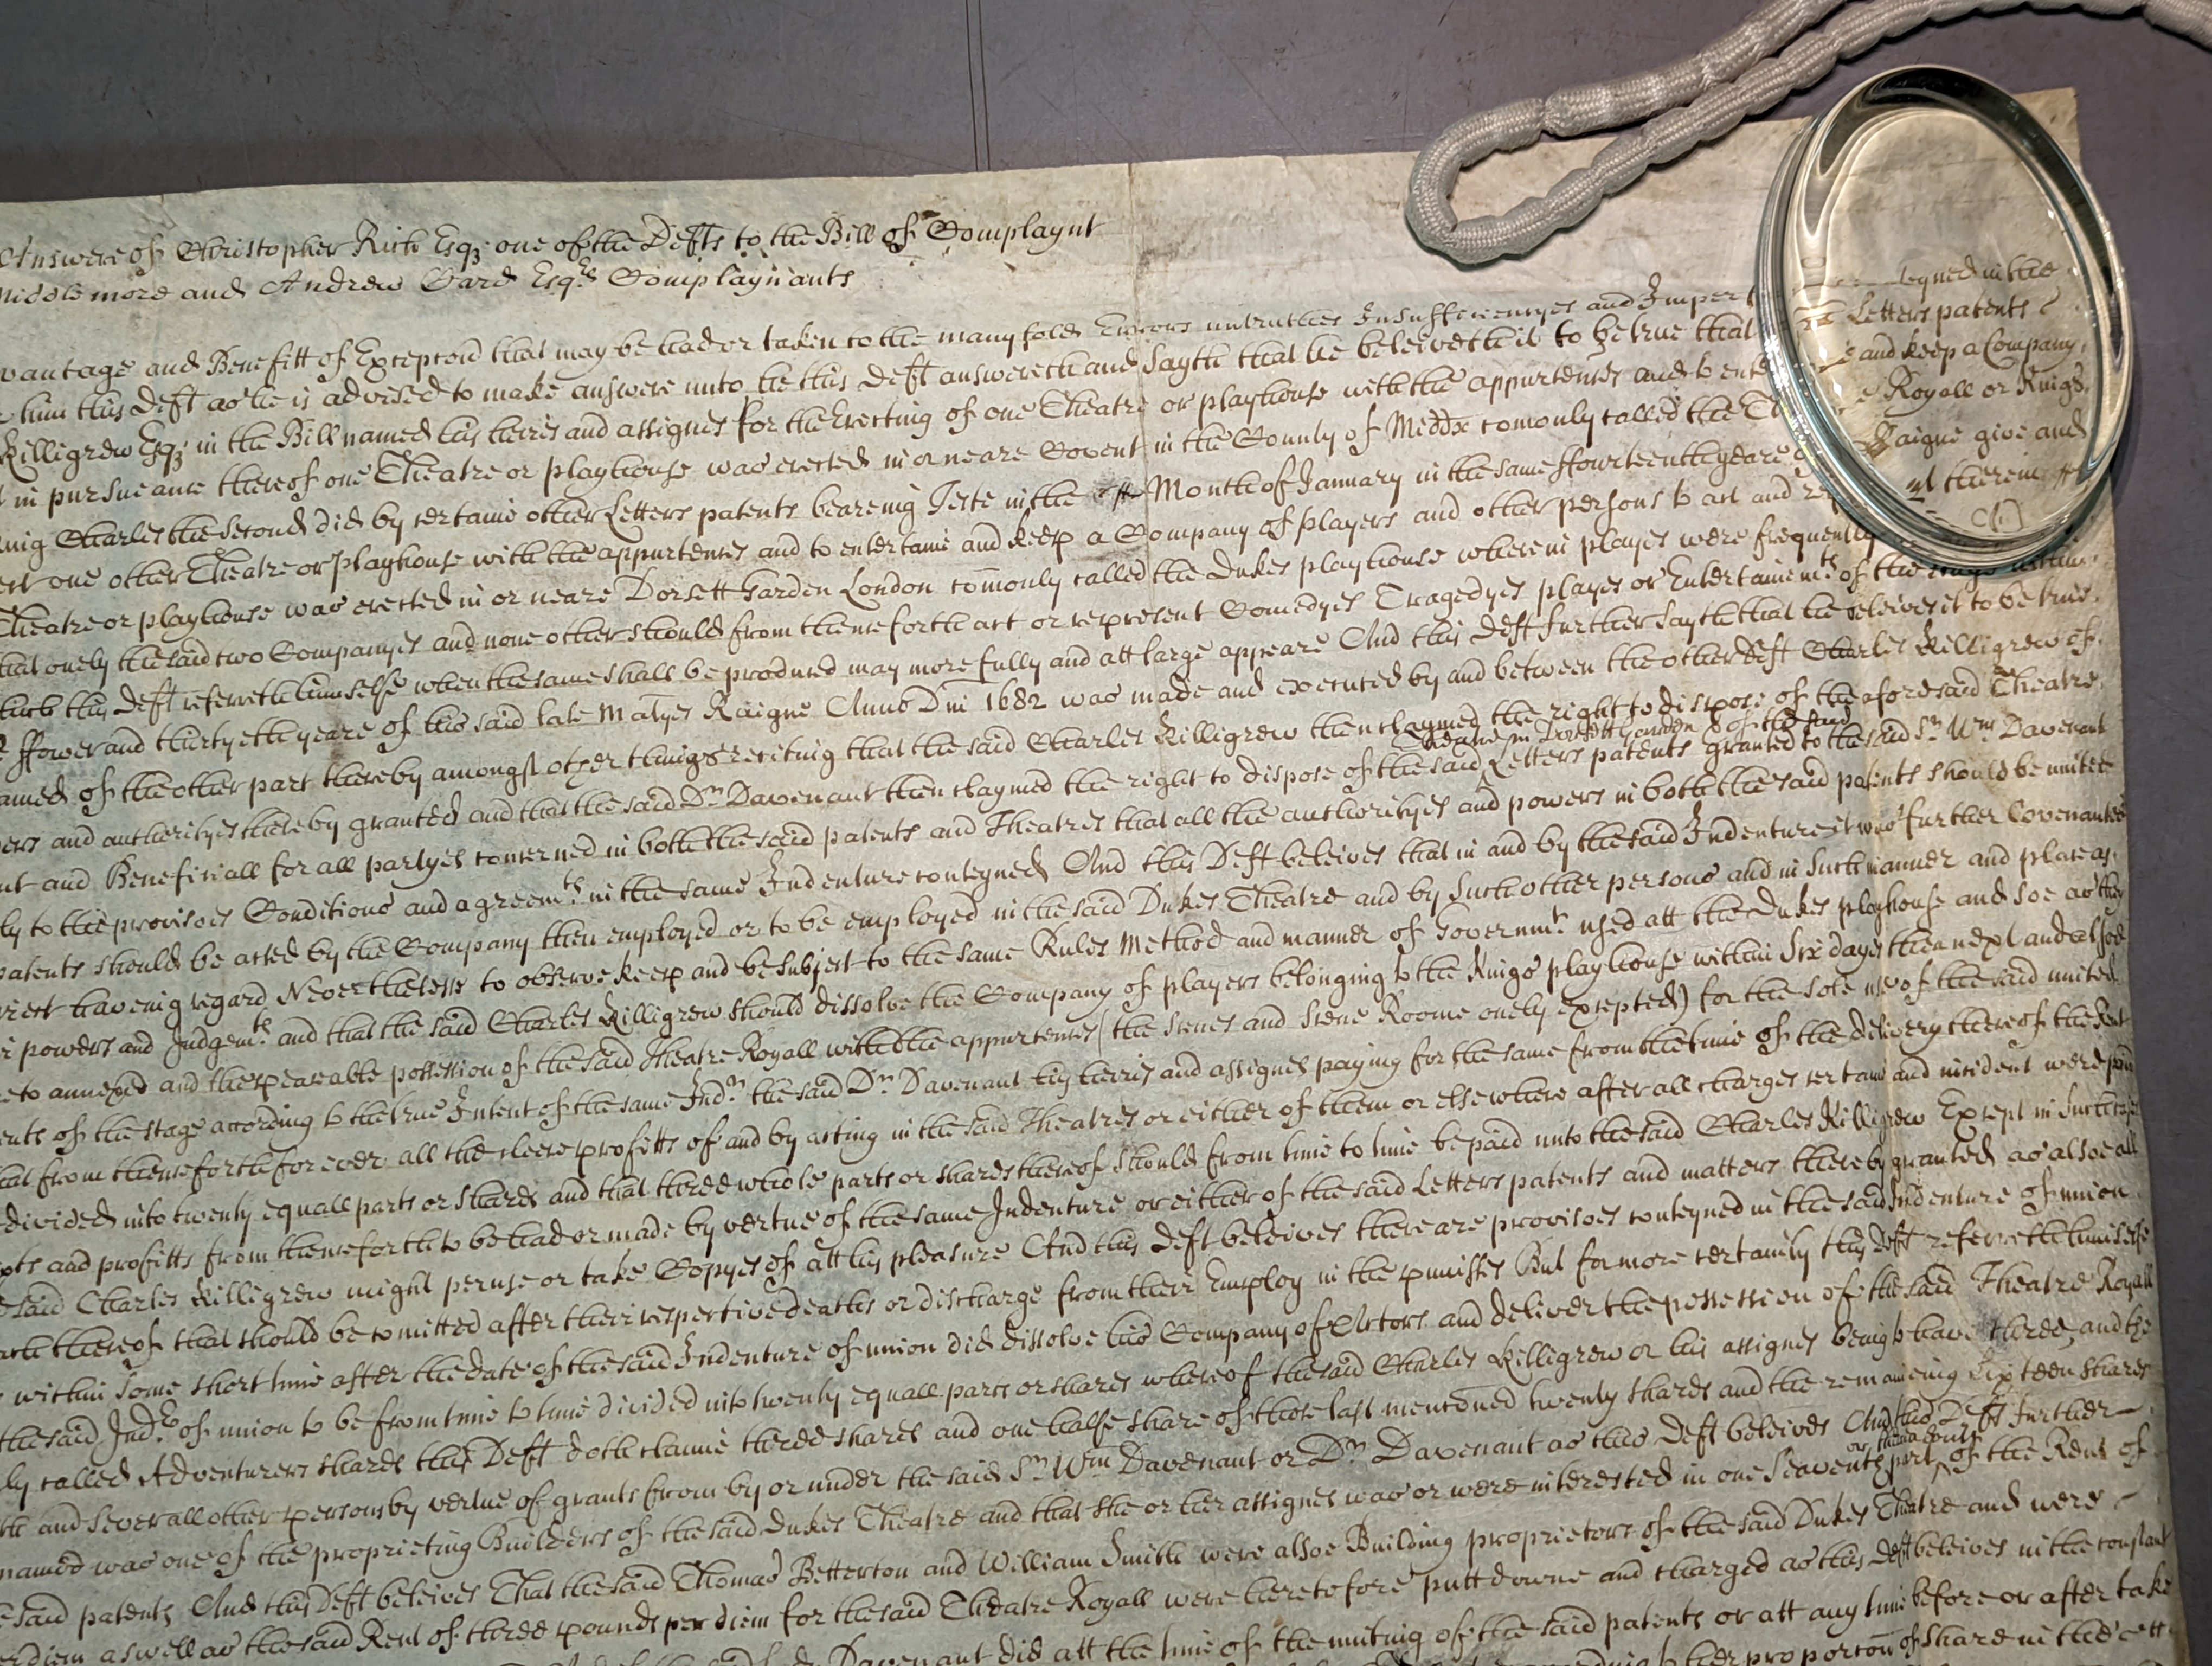 Answere of Christopher Rich Esqr one of the Defts to the Bill of Complaynt
and Andrew Card Esqrs Complaynants
vantage and Benefitt of Excepcon that may be had or taken to the many fold Errors untruthes Insufficiencyes and Imper
him this Deft as he is advised to make answere unto he this Deft answereth and Sayth that he beleiveth it to be true that Letters patents
Killigrew Esqr in the Bill named his heires and assignes for the Erecting of one Theatre or playhouse with the appurtences and to and keep a Company
in pursueance thereof one Theatre or playhouse was erected in or neare Covent in the County of Middx comonly called the Royall or Kings
Charles the Second did by certaine other Letters patents bearing Teste in the Month of January in the same ffowerteenth yeare Raigne give and
one other Theatre or playhouse with the appurtences and to entertaine and keep a Company of players and other persons to act and therein
Theatre or playhouse was erected in or neare Dorsett Garden London comonly called the Dukes playhouse wherein playes were frequently
that onely the said two Companyes and none other should from thenceforth act or represent Comedyes Tragedyes playes or Entertainemts of the
this Deft referreth himselfe when the same shall be produced may more fully and att large appeare And this Deft further Sayth that he beleives it to be true
ffower and thirtyeth yeare of his said late Matyes Raigne Anno Dni 1682 was made and executed by and between the other Deft Charles Killigrew of
of the other part thereby amongst other things reciting that the said Charles Killigrew then claymed the right to dispose of the aforesaid Theatre
Theatre in Dorsett Garden & of the said
and authorityes thereby granted and that the said Dr Davenant then claymed the right to dispose of the said Letters patents granted to the said Sr Wm Davenant
and Beneficiall for all partyes concerned in both the said patents and Theatres that all the authorityes and powers in both the said patents should be united
to the provisoes Conditions and agreemts in the same Indenture conteyned And this Deft beleives that in and by the said Indenture it was further Covenanted
patents should be acted by the Company then employed or to be employed in the said Dukes Theatre and by Such other persons and in Such manner and place as
haveing regard Neverthelesse to observe keep and be Subject to the same Rules Method and manner of Governmt used att the Dukes playhouse and soe as the
powers and Judgemts and that the said Charles Killigrew should dissolve the Company of players belonging to the Kings playhouse within Six dayes then next and alsoe
to annexed and the peaceable possession of the said Theatre Royall with the appurtences (the Scenes and Scene Roome onely excepted) for the sole use of the said united
of the stage according to the true Intent of the same Indre the said Dr Davenant his heires and assignes paying for the same from the time of the delivery thereof the Rent
that from thenceforth for ever all the cleere proffitts of and by acting in the said Theatres or either of them or elsewhere after all charges certaine and incident were paid
divided into twenty equall parts or shares and that three whole parts or shares thereof should from time to time be paid unto the said Charles Killigrew Except in Such
and profitts from thenceforth to be had or made by vertue of the same Indenture or either of the said Letters patents and matters thereby granted as alsoe all
said Charles Killigrew might peruse or take Copyes of att his pleasure And this Deft beleives there are provisoes conteyned in the said Indenture of union
thereof that should be comitted after their respective deathes or discharge from their Employ in the premisses But for more certainty this Deft referreth himselfe
within some short time after the date of the said Indenture of union did dissolve his Company of Actors and deliver the possession of the said Theatre Royall
the said Indre of union to be from time to time divided into twenty equall parts or shares whereof the said Charles Killigrew or his assignes being to have three, and the
called Adventurers shares this Deft doth claime three shares and one halfe share of those last mentioned twenty shares and the remaineing Sixteen shares
and severall other persons by vertue of grants from by or under the said Sr Wm Davenant or Dr Davenant as this Deft beleives And this Deft further
or thereabouts
named was one of the proprieting Builders of the said Dukes Theatre and that she or her assignes was or were interested in one Seaventh part of the Rent of
said patents And this Deft beleives That the said Thomas Betterton and William Smith were alsoe Building proprietors of the said Dukes Theatre and were
diem as well as the said Rent of three pounds per diem for the said Theatre Royall were heretofore putt downe and charged as this Deft beleives in the constant
Davenant did att the time of the uniting of the said patents or att any time before or after take
her proporcon of share in the